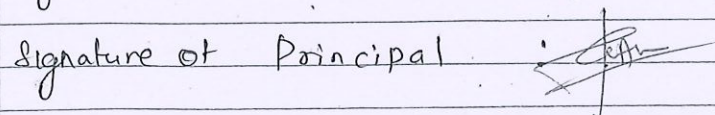 Signature of Principal :